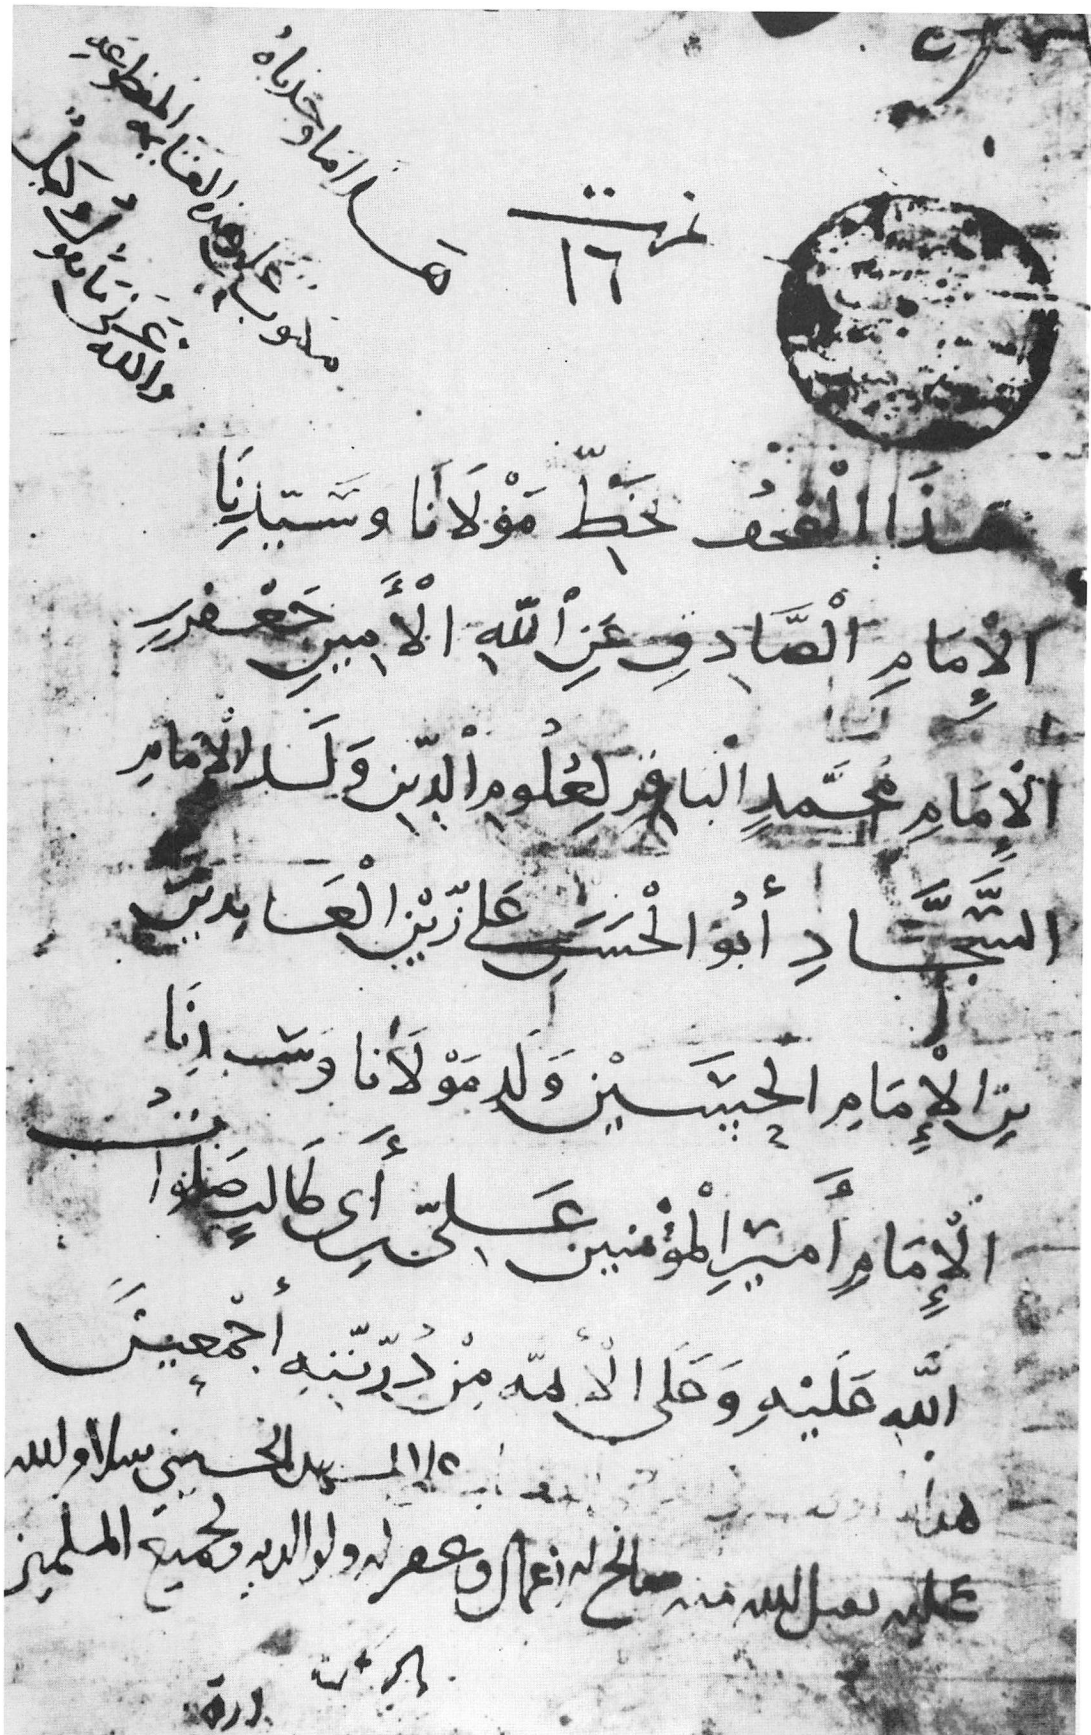 هذا ما وجدناه
مكتوب على هذه
والله على ما نقول وكيل
نمرت
١٦
هَذَا الْمُصْحَفُ بِخَطِّ مَوْلَانَا وَسَيِّدِنَا
الْإِمَامِ الْصَّادِقِ عَنِ اللَّهِ الْأَمِينِ جَعْفَرِ بنِ
الْإِمَامِ مُحَمَّدٍ الْبَاقِرِ لِعُلُومِ الْدِّينِ وَلَدِ الْإِمَامِ
السَّجَّادِ أَبُو الْحَسَنِ عَلي زَيْنِ الْعَابِدِينَ
بنِ الْإِمَامِ الْحُسَيْنِ وَلَدِ مَوْلَانَا وَسَيِّدِنَا
الْإِمَامِ أَمِيرِ الْمُؤْمِنِينَ عَلِيّ بنِ أَبِي طَالِبٍ صَلَوَاتُ
اللَّهِ عَلَيْهِ وَعَلَى الْأَئِمَّه مِنْ ذُرِّيَّتِهِ أَجْمَعِينَ
هذا الحسيني سلام الله
عليه تقبل الله منه صالح الاعمال وغفر له ولوالديه ولجميع المسلمين